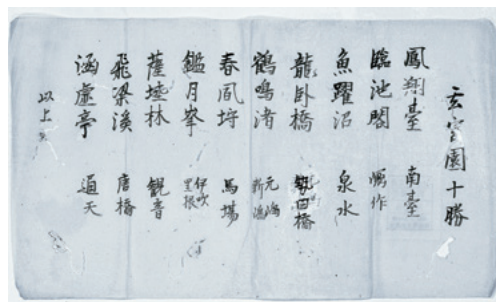 玄宮園十勝
鳳翔臺 南臺
臨池閣 作
魚躍沼 泉水
龍臥橋 勢田橋
鶴鳴渚 元嶋 新嶋
春風埒 馬場
鑑月峯 伊吹 里根
薩埵林 観音
飛梁渓 唐橋
涵虚亭 通天
以上